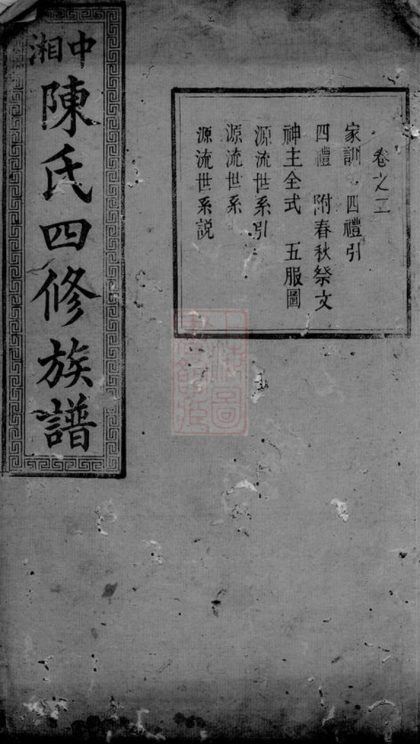 中湘
陳氏四修族譜
卷之二
家訓 四禮引
四禮 附春秋祭文
神主全式 五服圖
源流世系引
源流世系
源流世系説